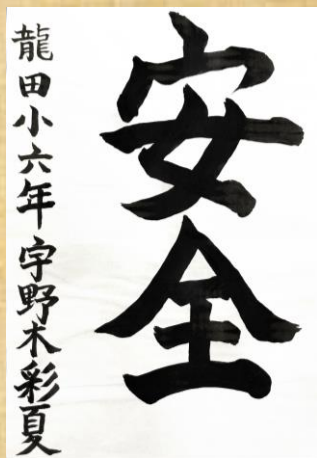 安全
龍田小六年宇野木彩夏